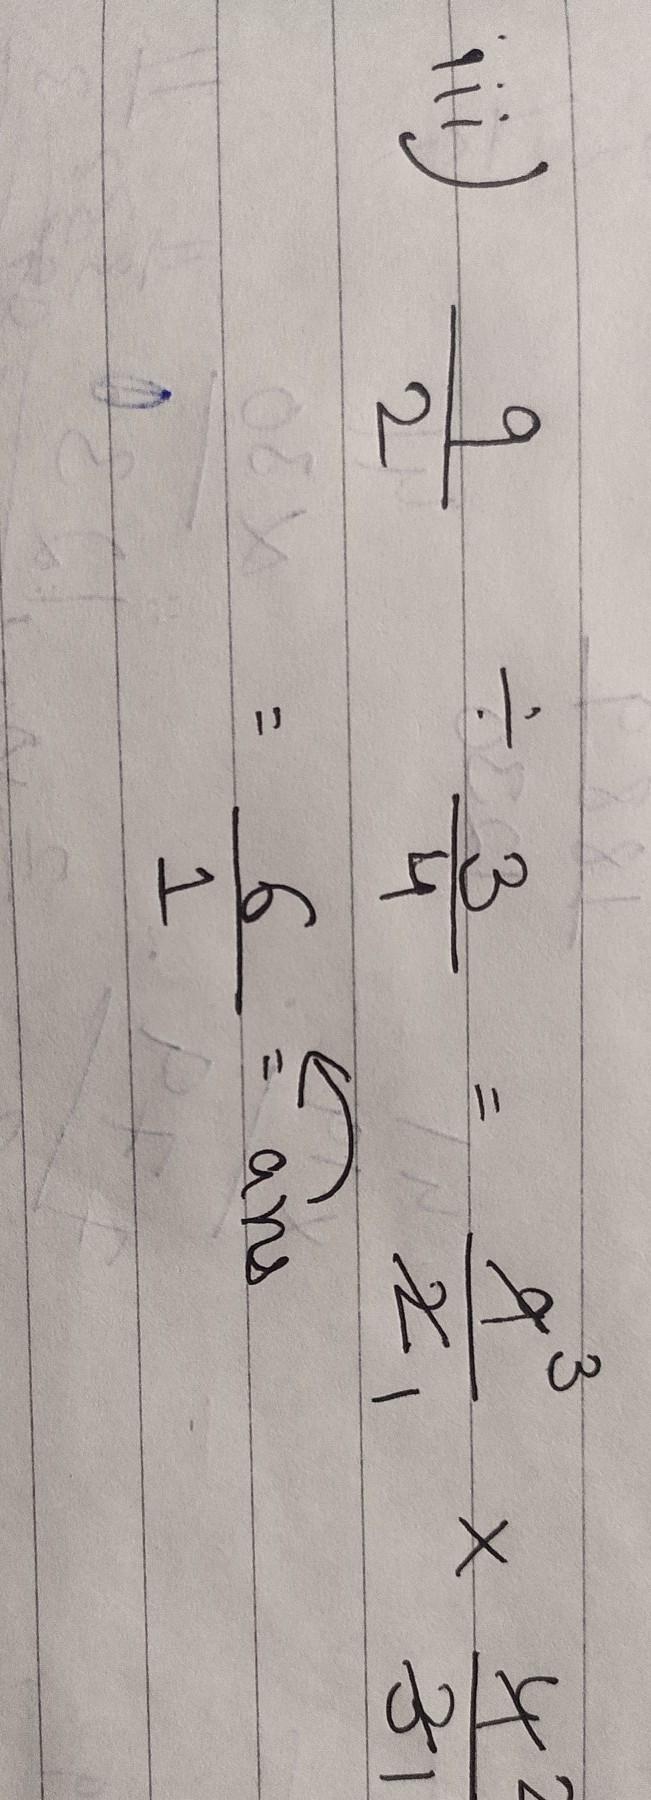 iii) 9/2 ÷ 3/4 = 9̶³/2̶₁ × 4̶²/3̶₁
= 6/1 = ans